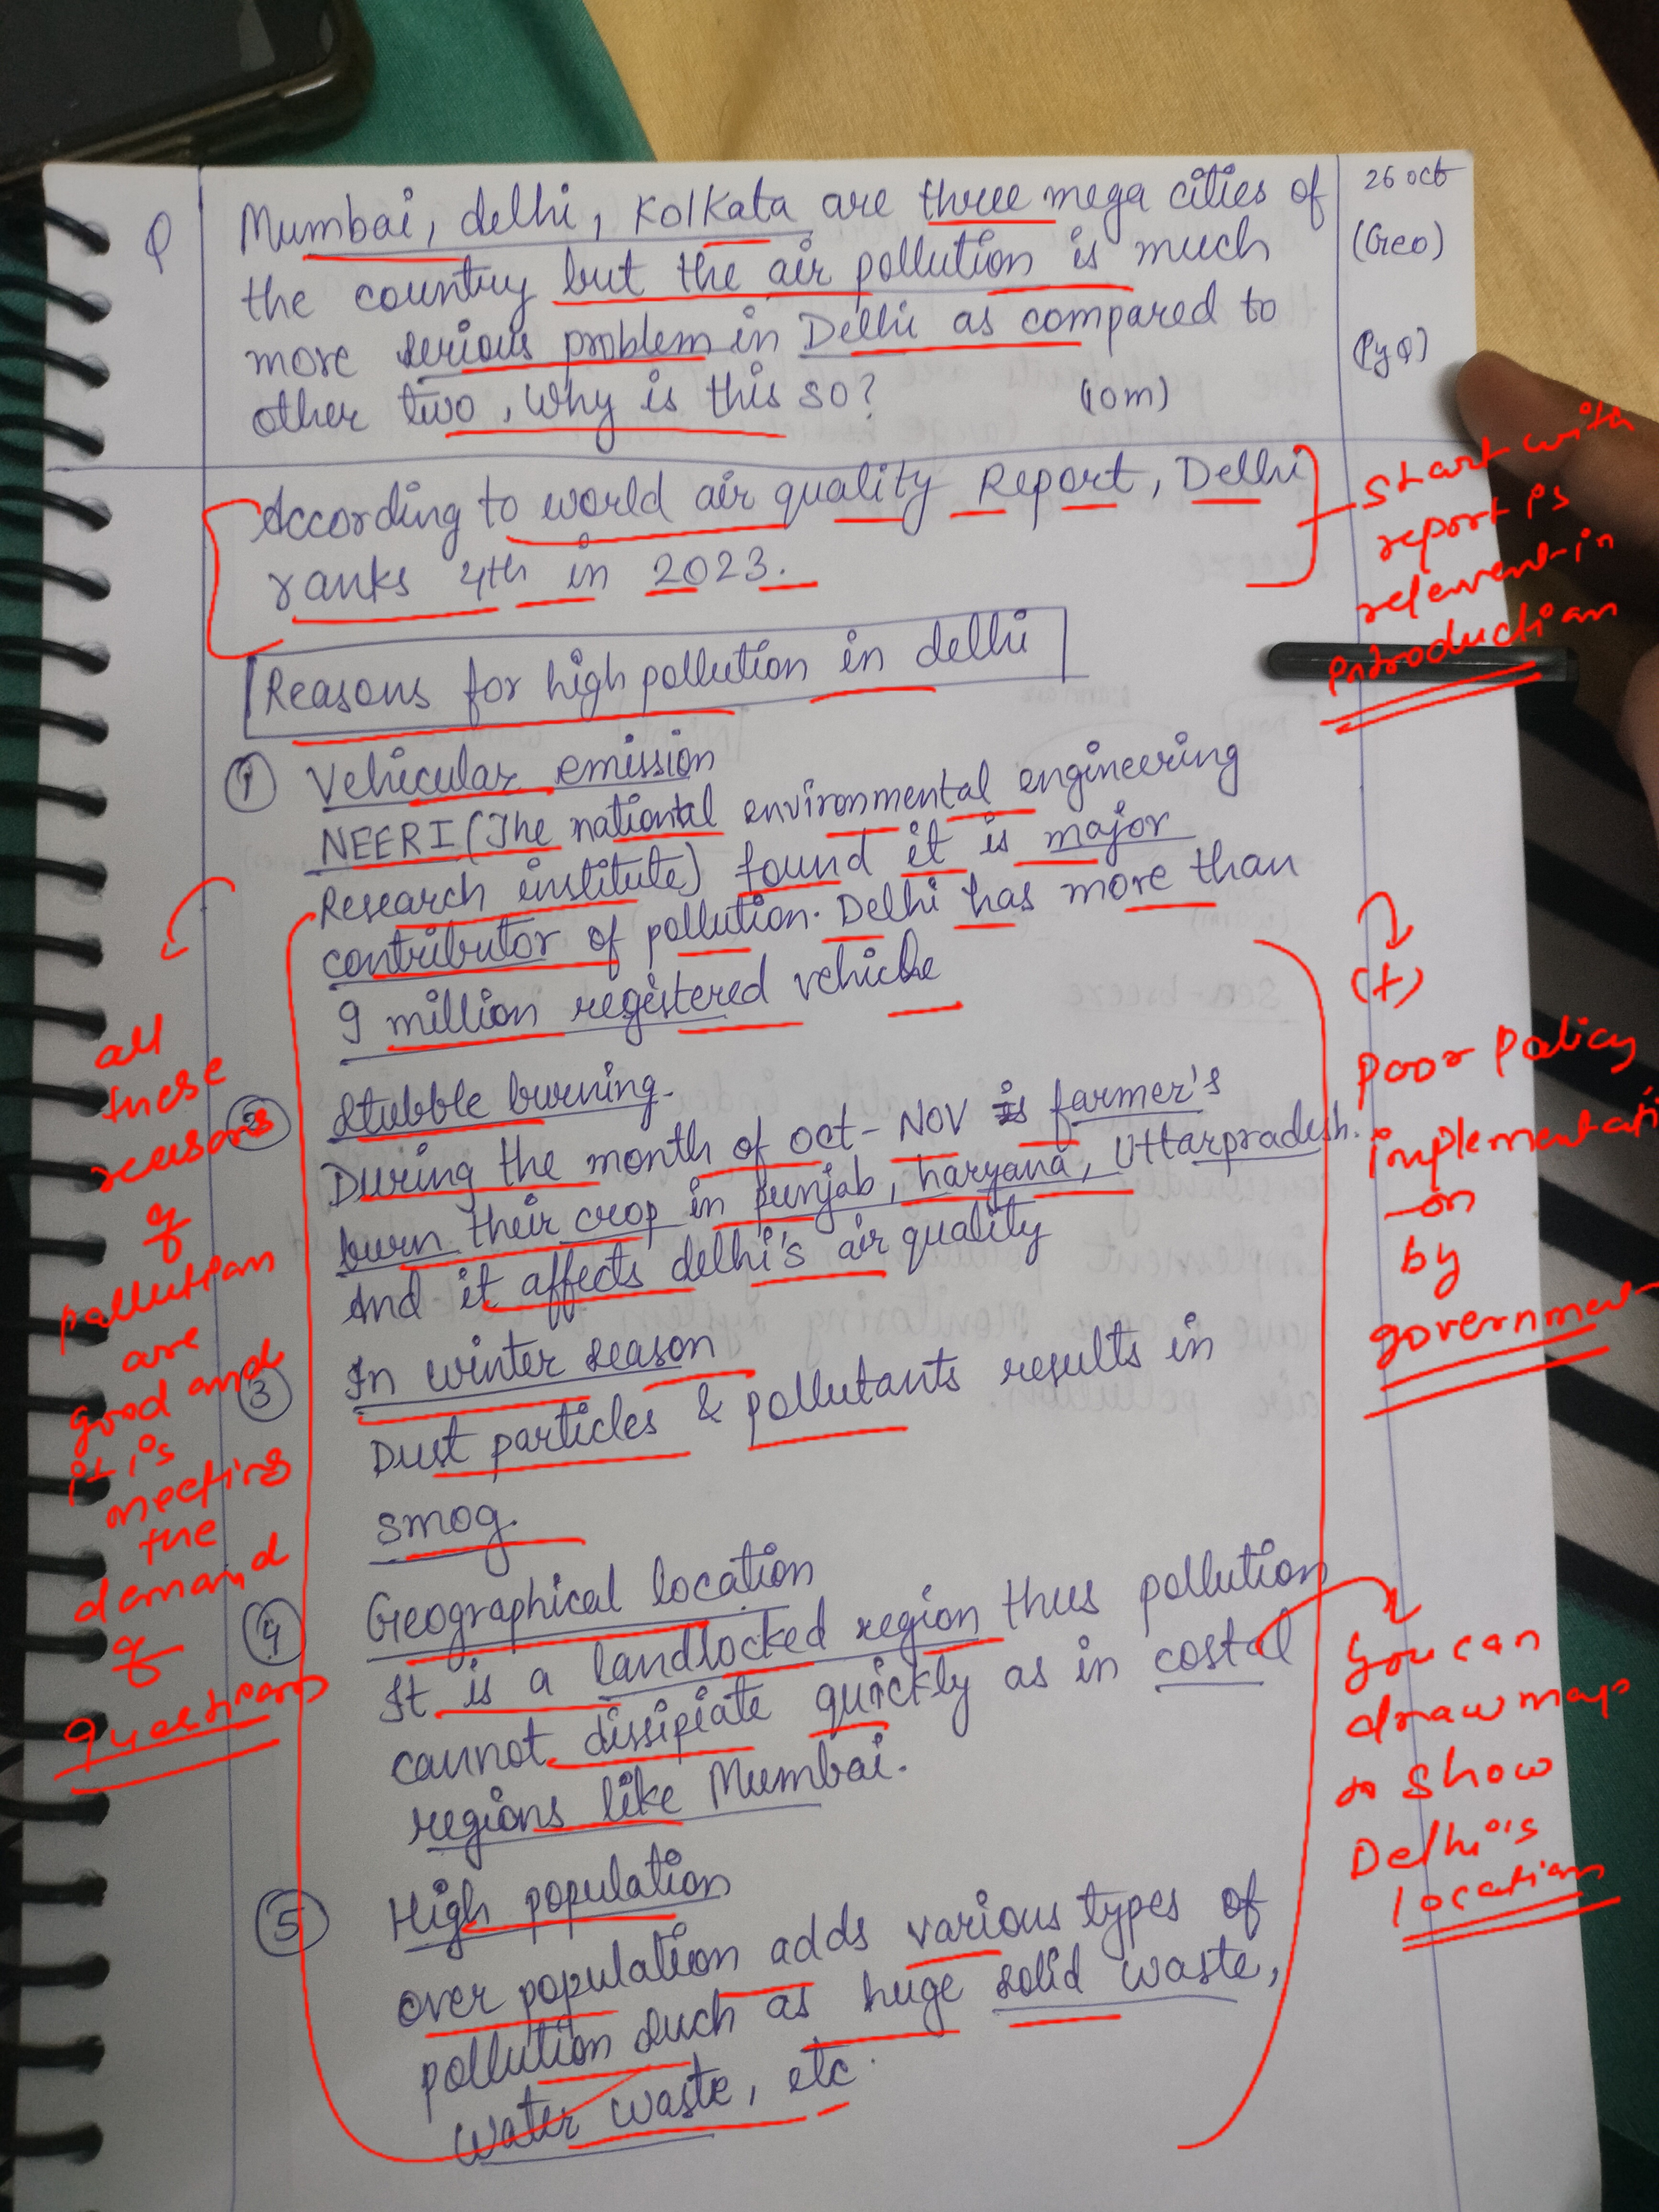 Q
Mumbai, delhi, Kolkata are three mega cities of
the country but the air pollution is much
more serious problem in Delhi as compared to
other two, Why is this so? (10m)
26 oct
(Geo)
(PyQ)
According to world air quality Report, Delhi
ranks 4th in 2023.
start with
report is
relevent in
introduction
Reasons for high pollution in delhi
① Vehicular emission
NEERI (The national environmental engineering
Research institute) found it is major
contributor of pollution. Delhi has more than
9 million registered vehicle
② Stubble burning.
During the month of oct - NOV farmer's
burn their crop in punjab, haryana, Uttarpradesh.
And it affects delhi's air quality
③ In winter season
Dust particles & pollutants results in
smog.
④ Geographical location
It is a landlocked region thus pollution
cannot dissipiate quickly as in costal
regions like Mumbai.
⑤ High population
over population adds various types of
pollution such as huge solid waste,
water waste, etc.
all
these
reasons
of
pollution
are
good and
it is
meeting
the
demand
of
questions
(+)
poor policy
implementati
-on
by
government
you can
draw map
to show
Delhi's
location